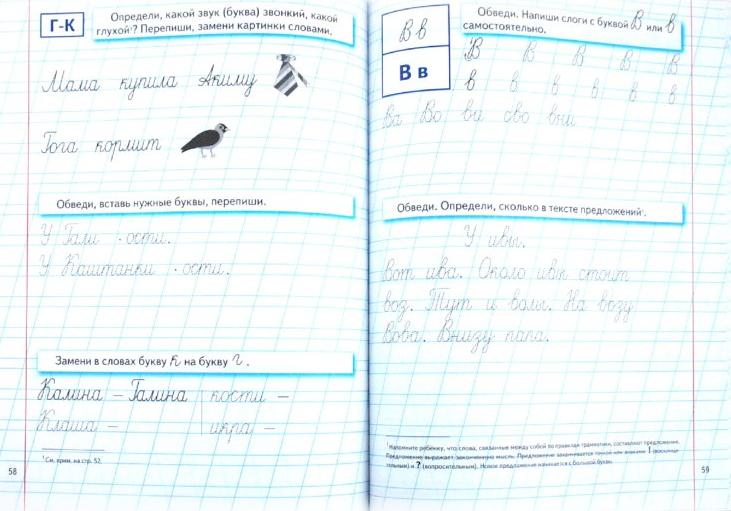 Г-К
Определи, какой звук (буква) звонкий, какой
глухой¹? Перепиши, замени картинки словами.
Мама купила Акиму
Гога кормит
Обведи, вставь нужные буквы, перепиши.
У Гали · ости.
У Каштанки · ости.
Замени в словах букву к на букву г.
Калина – Галина | кости –
Клаша – | икра –
¹ См. прим. на стр. 52.
58
В в
В в
Обведи. Напиши слоги с буквой В или в
самостоятельно.
В В В В В
в в в в в в
ва Во ви сво вни
Обведи. Определи, сколько в тексте предложений¹.
У ивы.
Вот ива. Около ивы стоит
воз. Тут и волы. На возу
Вова. Внизу папа.
¹ Напомните ребёнку, что слова, связанные между собой по правилам грамматики, составляют предложение.
Предложение выражает законченную мысль. Предложение заканчивается точкой или знаками ! (восклица-
тельным) и ? (вопросительным). Новое предложение начинается с большой буквы.
59